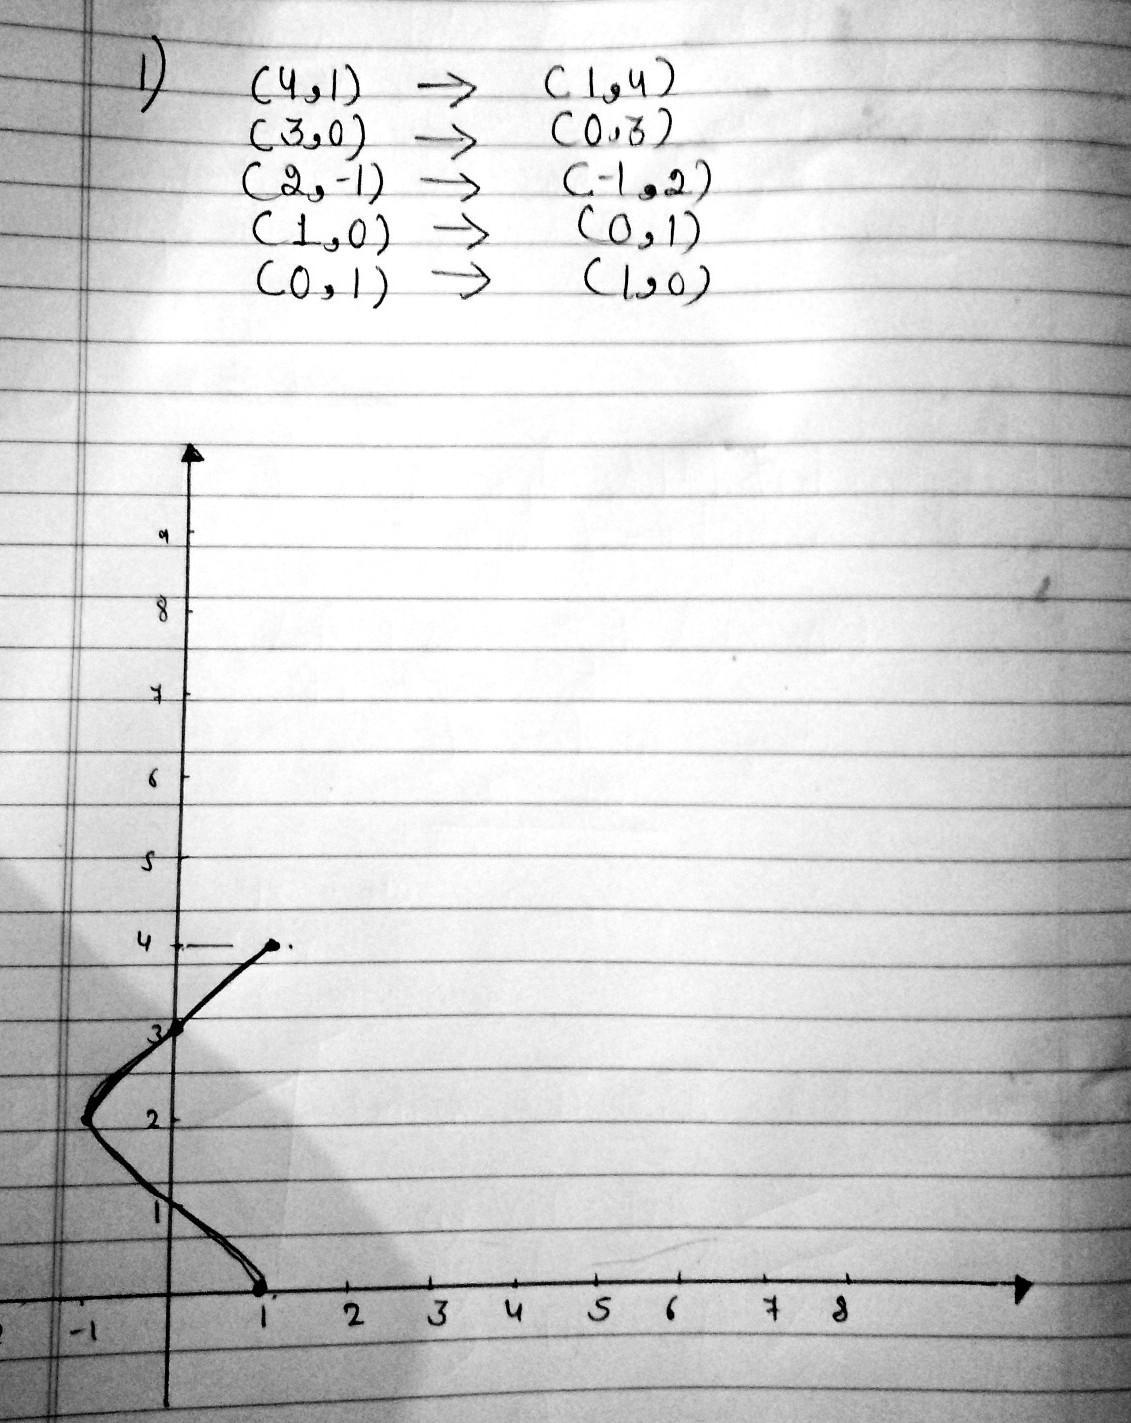 1)
(4,1) → (1,4)
(3,0) → (0,3)
(2,-1) → (-1,2)
(1,0) → (0,1)
(0,1) → (1,0)
9
8
7
6
5
4
3
2
1
-1 1 2 3 4 5 6 7 8